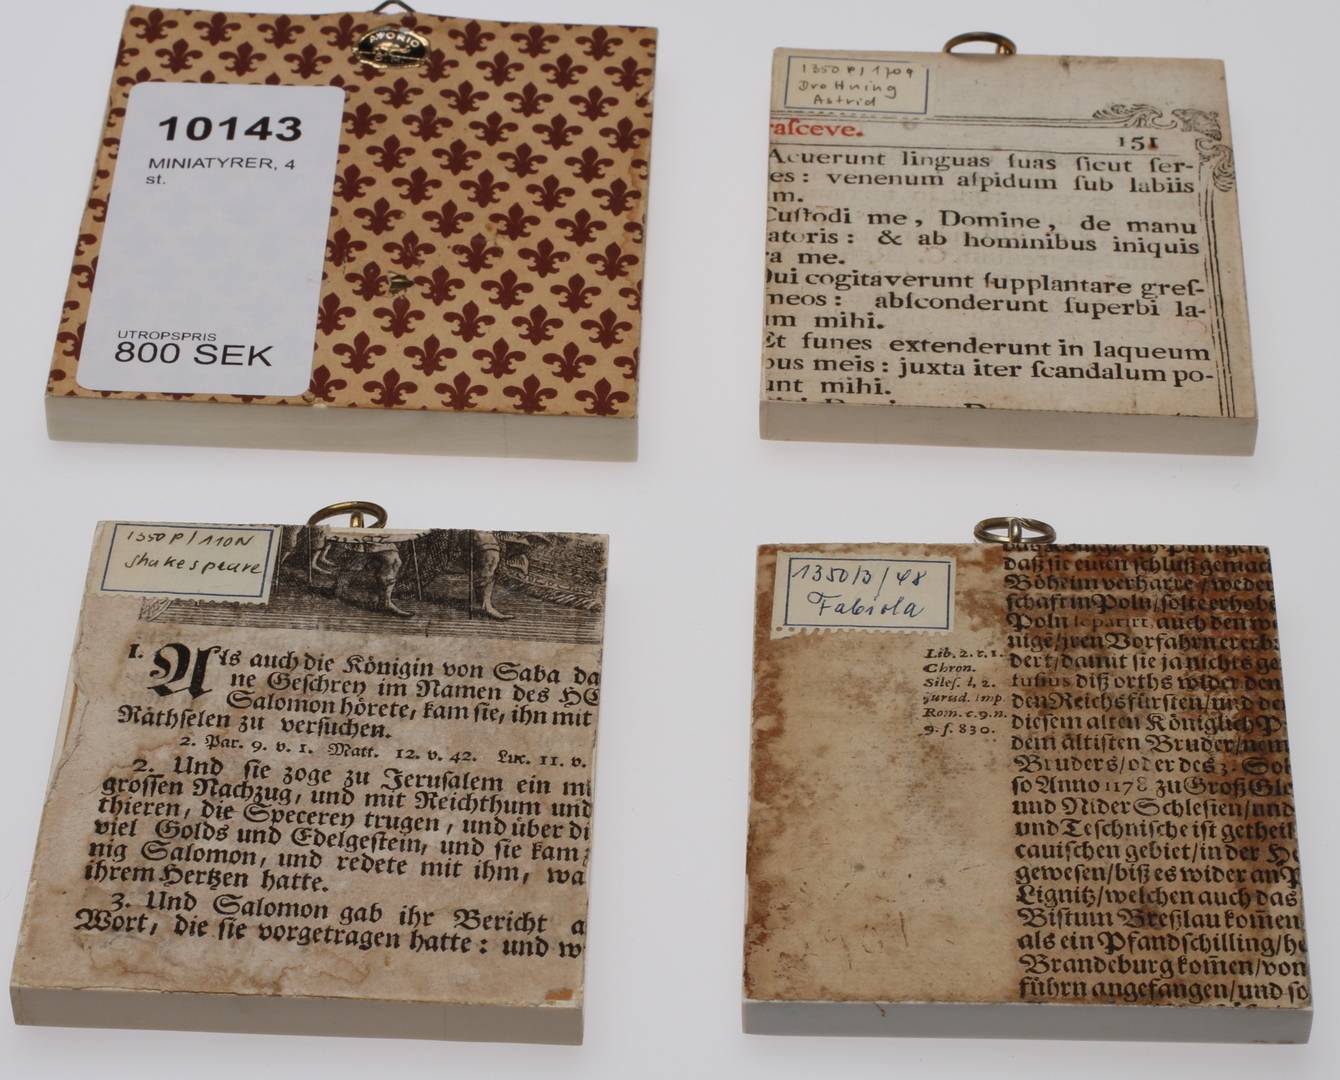 AVORIO
10143
MINIATYRER, 4
st.
UTROPSPRIS
800 SEK
1350 P/1709
Drottning
Astrid
rasceve.
151
Acuerunt linguas ſuas ſicut ſer-
es: venenum aſpidum ſub labiis
m.
Cuſtodi me, Domine, de manu
atoris: & ab hominibus iniquis
a me.
Qui cogitaverunt ſupplantare greſ-
meos: abſconderunt ſuperbi la-
um mihi.
Et funes extenderunt in laqueum
bus meis: juxta iter ſcandalum po-
unt mihi.
1350 P/110N
Shakespeare
1. Als auch die Königin von Saba da
ne Geſchrey im Namen des HE
Salomon hörete, kam ſie, ihn mit
Räthſelen zu verſuchen.
2. Par. 9. v. 1. Matt. 12. v. 42. Luc. 11. v.
2. Und ſie zoge zu Jeruſalem ein mi
groſſen Nachzug, und mit Reichthum und
thieren, die Specerey trugen, und über di
viel Golds und Edelgeſtein, und ſie kam
nig Salomon, und redete mit ihm, wa
ihrem Hertzen hatte.
3. Und Salomon gab ihr Bericht a
Wort, die ſie vorgetragen hatte: und w
1350/3/48
Fabiola
Lib. 2. c. 1.
Chron.
Sileſ. l, 2.
jurisd. imp
Rom. c. 9. n.
9. f. 830.
daß ſie einen ſchluß gemach
Böheim verharre/weder
ſchafft in Poln/ſolte erhobe
Poln ſepariet, auch den we
nige/jren Vorfahrn ererb:
dert/damit ſie ja nichts ge
tuſius diß orths wider den
den Reichsfürſten/und de
dieſem alten Königlich P
dem ältiſten Bruder/nem
Bruders/oder des 3. Soh
ſo Anno 1178 zu Groß Glo
und Nider Schleſien/und
und Teſchniſche iſt getheil
cauiſchen gebiet/in der He
geweſen/biß es wider an P
Lignitz/welchen auch das
Biſtum Breßlau kom̃en
als ein Pfandſchilling/he
Brandeburg kom̃en/von
führn angefangen/und ſo